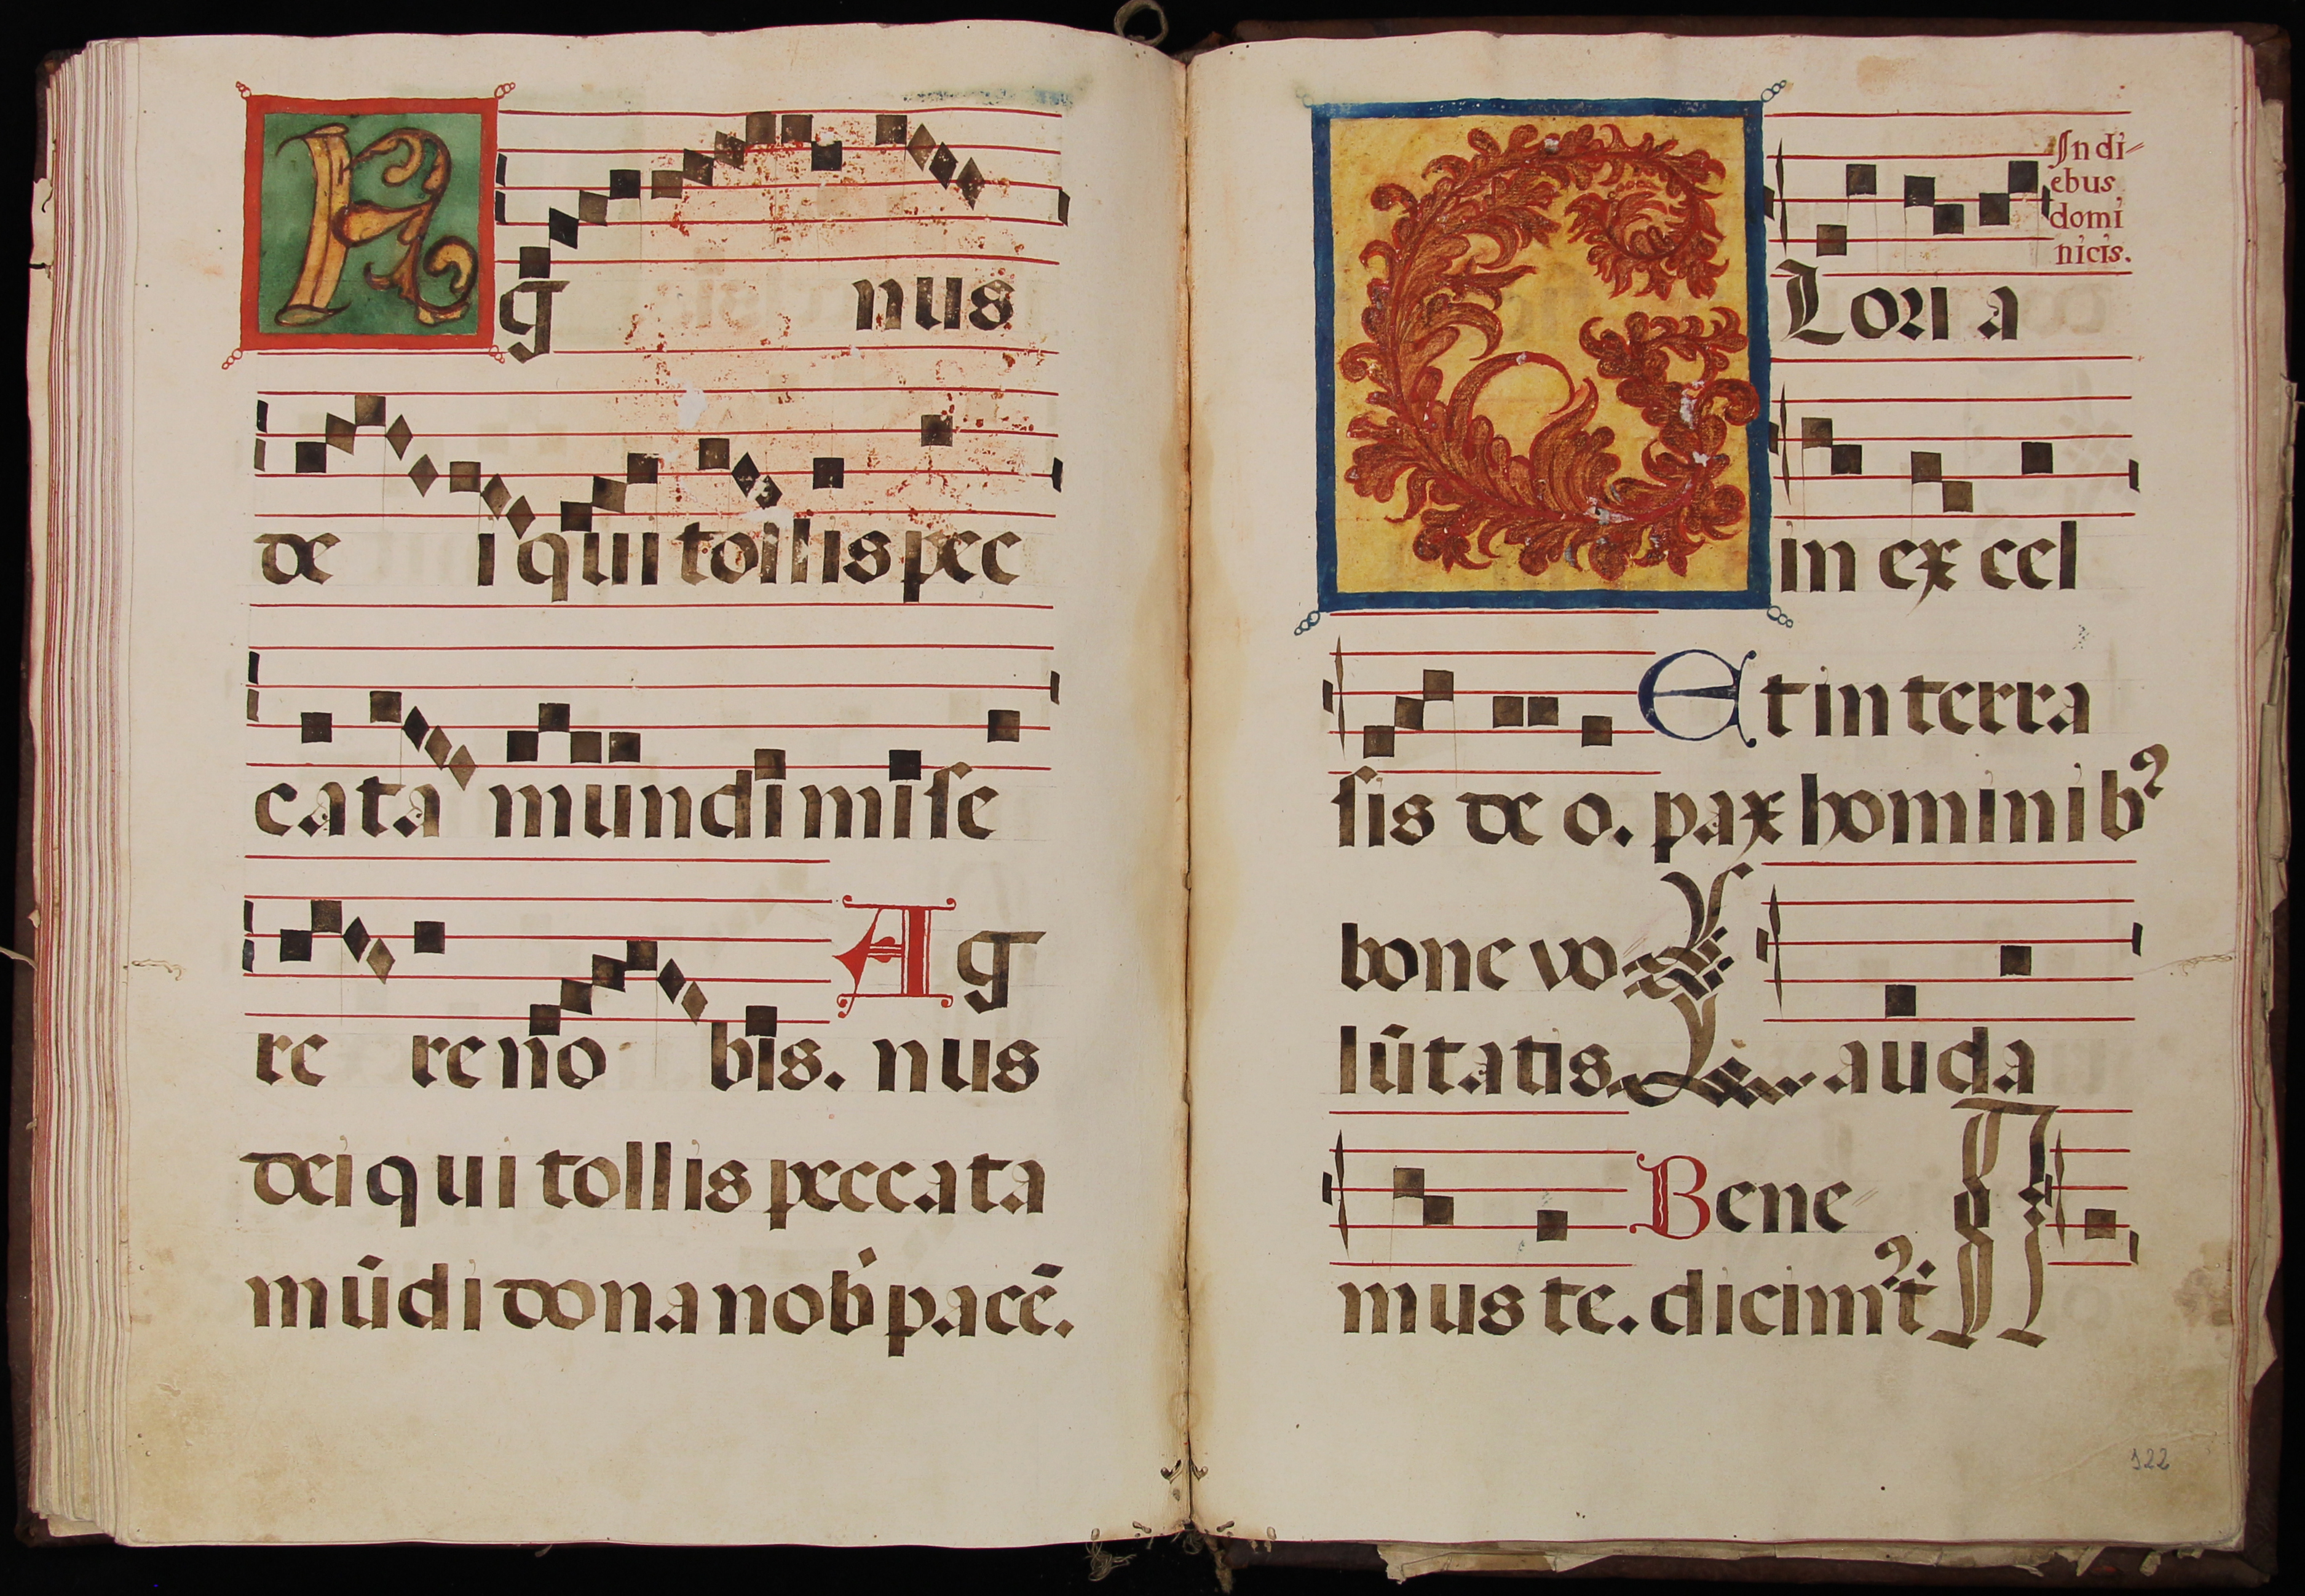 Ag nus
de i qui tollis pec
cata mundi mise
Ag
re re no bis. nus
dei qui tollis peccata
mūdi dona nob̄ pacē.
In di-
ebus
domi
nicis.
GLori a
in ex cel
Et in terra
sis de o. pax hominibꝰ
bone vo-
lūtatis. Lauda
Bene-
mus te. dicimꝰ t
122